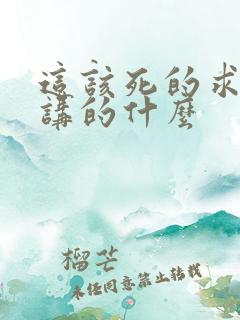 這該死的求
講的什麼
榴芒
未經同意禁止轉載